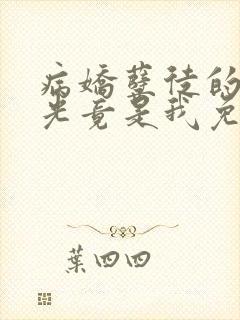 病嬌孽徒的
光竟是我免
葉四四